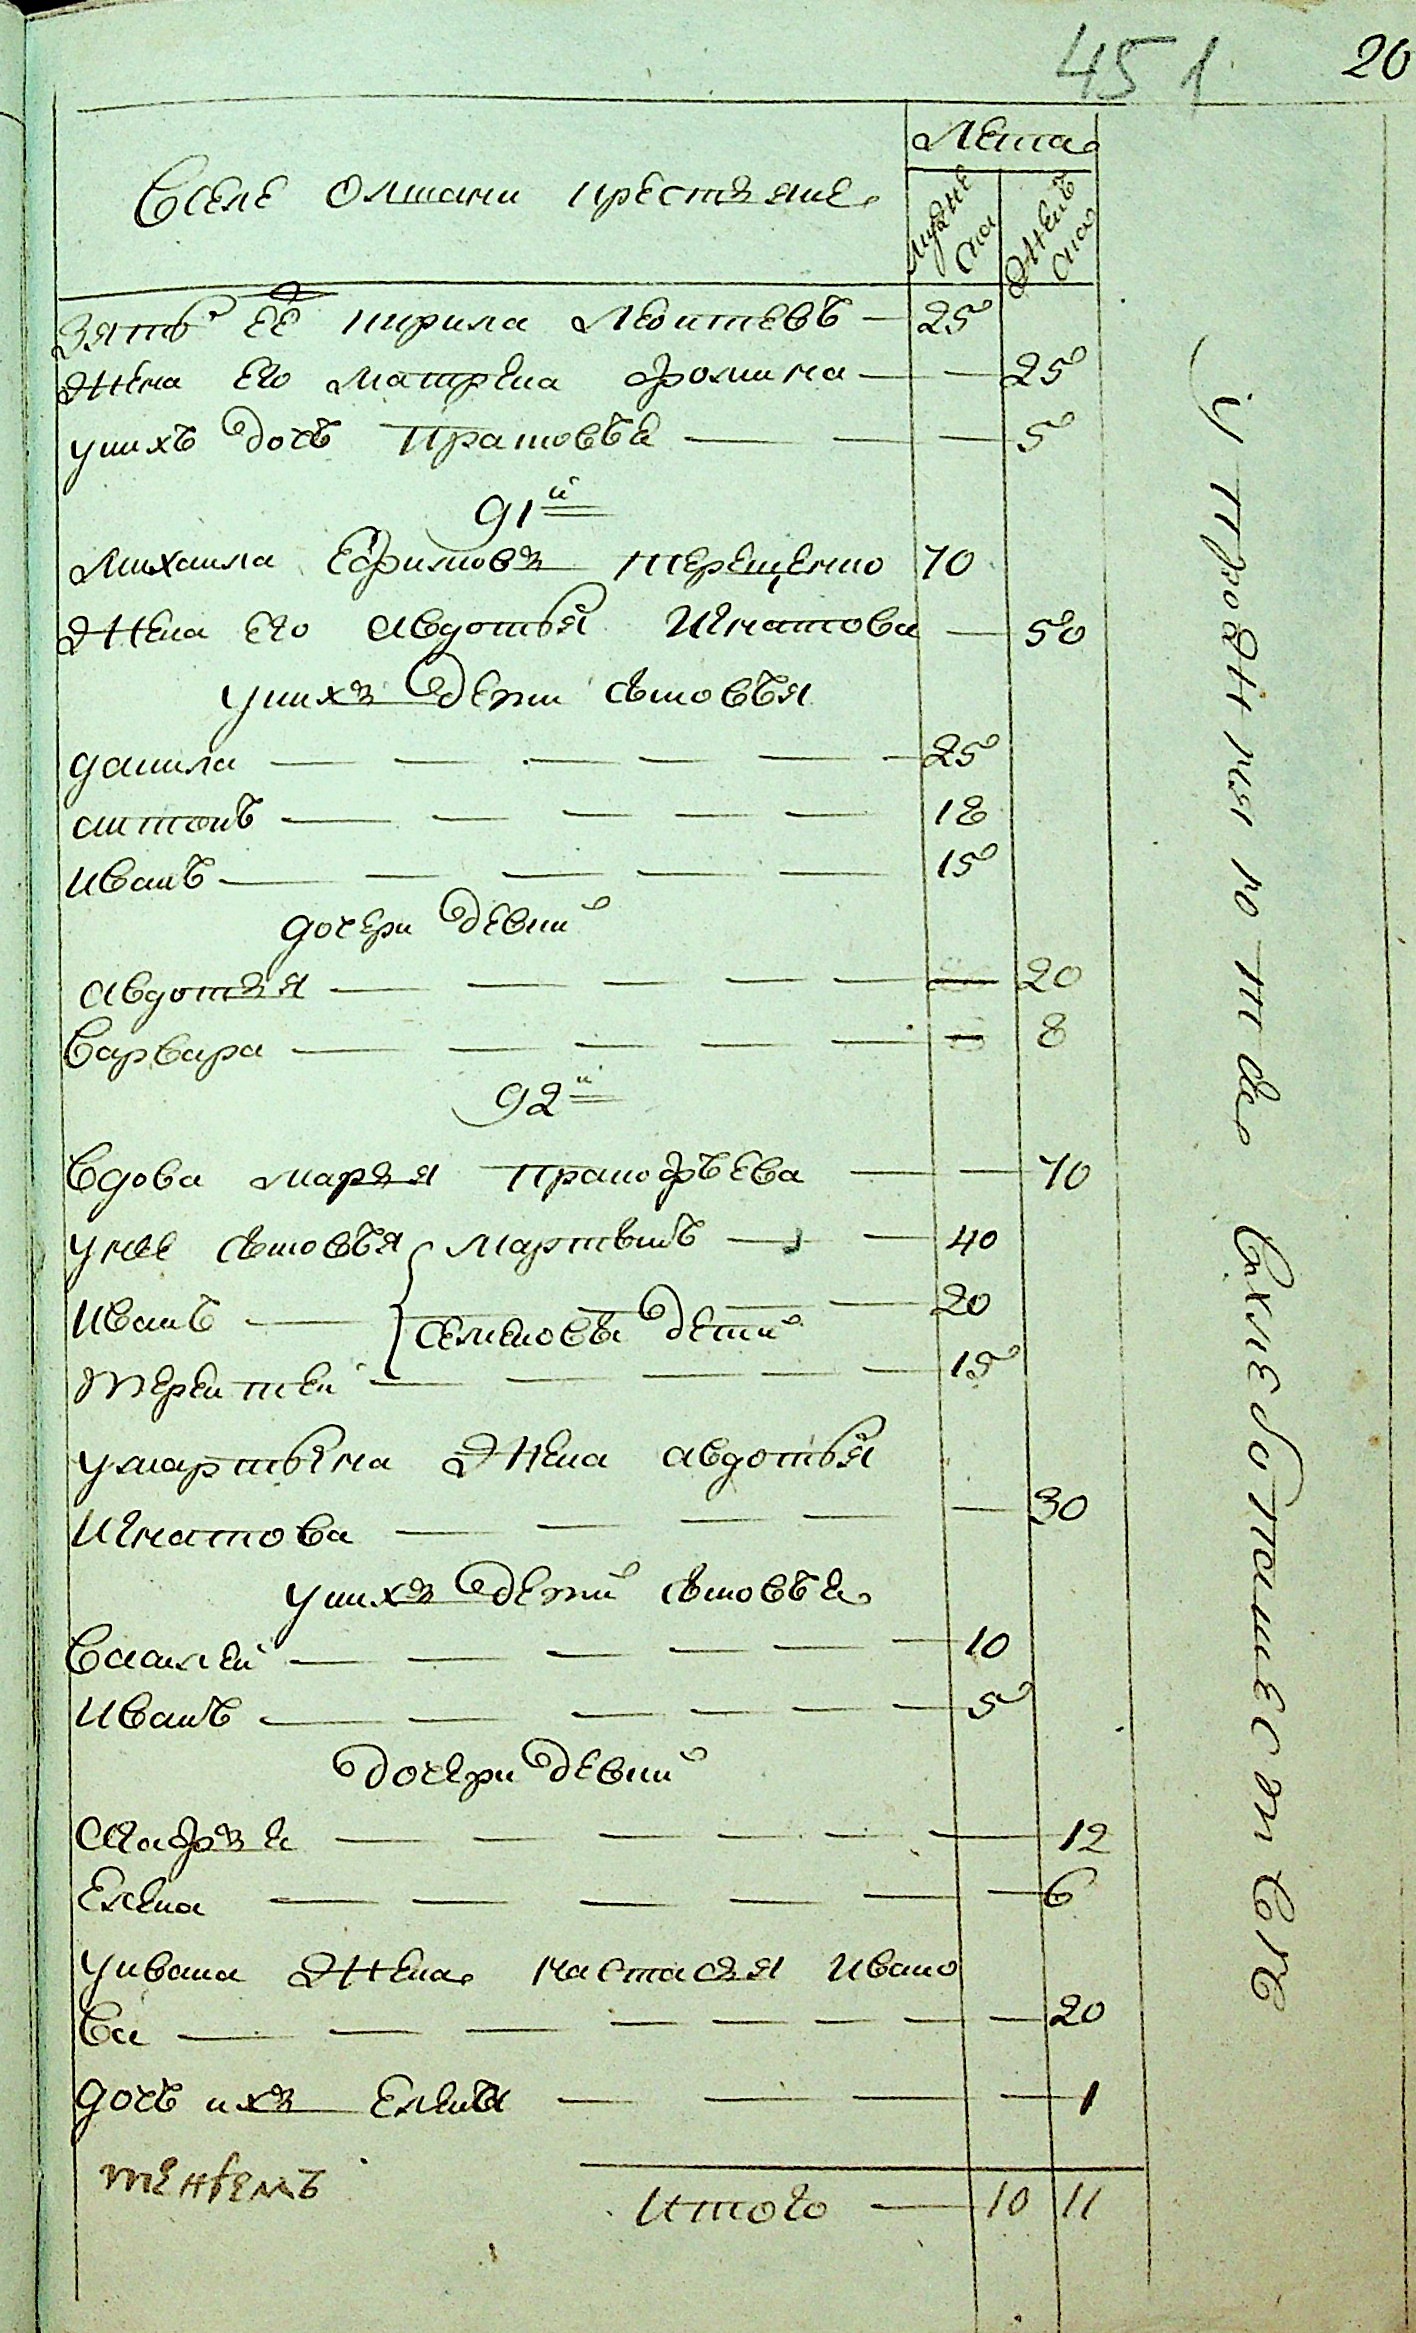 451
20
Вселе Олшани крестьяне
Лета
мужеска
женска
Зять ее Кирила Леонтевъ 25
Жена его Матрена Фомина 25
унихъ дочь Прасковья 5
91й
Михаила Ефимовъ Терещенко 70
Жена его Авдотья Игнатова 50
унихъ дети сыновья
Данила 25
антонъ 18
Иванъ 15
дочери девки
Авдотья 20
Варвара 8
92й
Вдова марья Прокофьева 70
унее сыновья мартынъ 40
Иванъ 20
Семеновы дети
Терентей 15
умартына Жена авдотья
Игнатова 30
унихъ дети сыновья
Василей 10
Иванъ 5
дочери девки
Агафья 12
Елена 6
уивана Жена настасья ивано
ва 20
дочь ихъ Елена 1
Итого 10 11